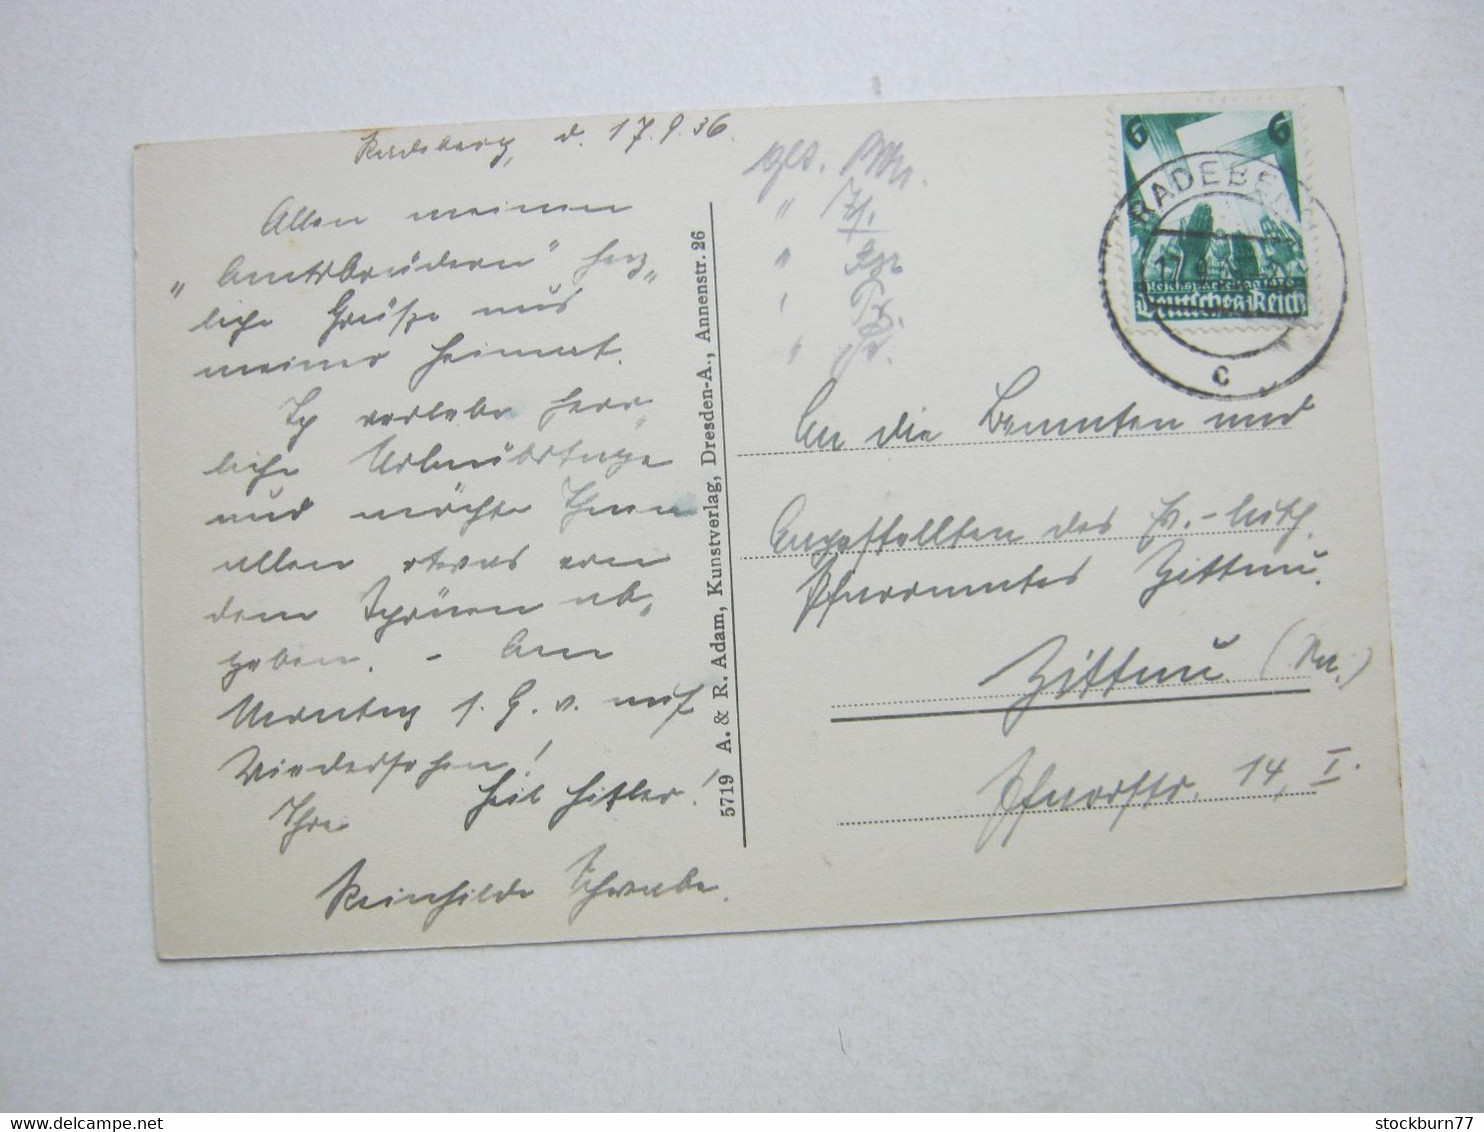 Radeberg, d. 17.9.36.
Allen meinen
„Amtsbrüdern" herz„
liche Grüße aus
meiner Heimat.
Ich verlebe herr„
liche Urlaubstage
und möchte Ihnen
allen etwas von
dem Schönen ab„
geben. – Am
Montag s. G. w. auf
Wiedersehen!
Heil Hitler!
Ihre
Reinhilde Schwabe.
5719 A. & R. Adam, Kunstverlag, Dresden-A., Annenstr. 26
gel.
"
"
"
"
6 6
Reichsparteitag 1936
Deutsches Reich
RADEBERG
17.9.36
c
An die Beamten und
Angestellten des Ev.-luth.
Pfarramtes Zittau.
Zittau (Sa.)
Pfarrstr. 14, I.
stockburn77